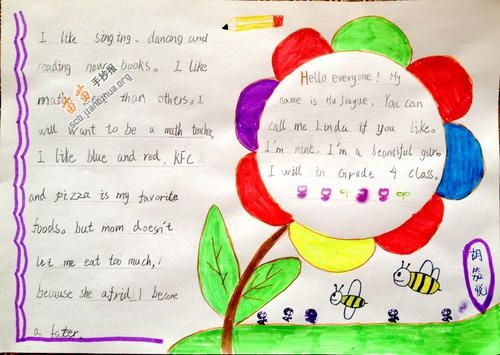 Hello everyone! My
name is Hu Jiayue, You can
call me Linda if you like.
I'm nine. I'm a beautiful girl.
I will in Grade 4 class.
I like singing, dancing and
reading new books. I like
math than others. I
will want to be a math teacher.
I like blue and red, KFC
and pizza is my favorite
foods. but mom doesn't
let me eat too much,
because she afrid I become
a fater.
胡
悦
苗苗手抄报
scb.jianbihua.org